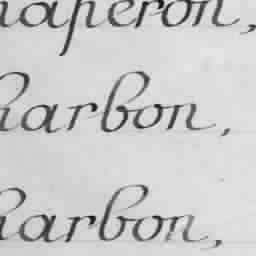 haperon,
harbon,
harbon,